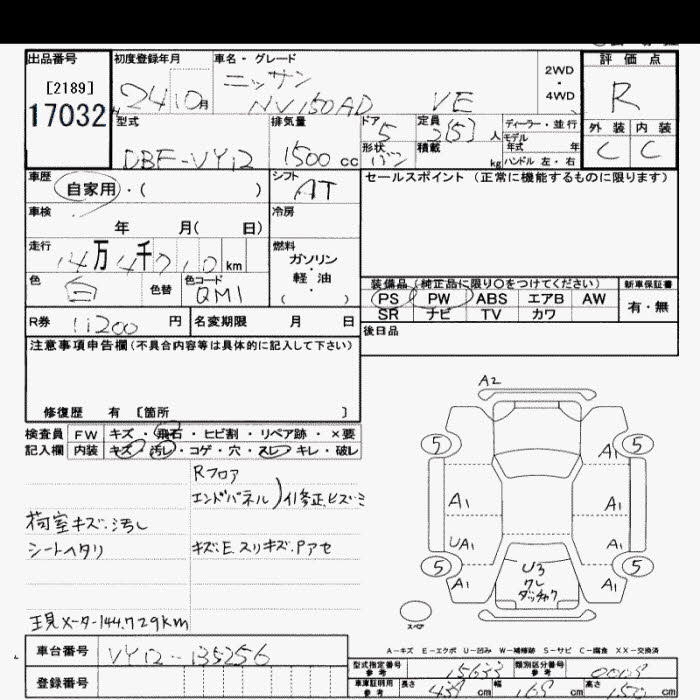 出品番号 初度登録年月 車名・グレード 評価点
[2189] 24 10月 ニッサン 2WD・4WD R
17032 NV150AD VE
外装 内装
C C
型式 排気量 ドア 定員 ディーラー・並行
DBF-VY12 1500cc 5 2(5)人 モデル年式 年
形状 バン 積載 kg ハンドル 左・右
車歴 シフト セールスポイント (正常に機能するものに限ります)
自家用・( ) AT
車検 冷房
年 月( 日)
走行 燃料
14万4千710km ガソリン・軽油
( )
色 色替 色コード
白 QM1
装備品(純正品に限り○をつけてください) 新車保証書
PS PW ABS エアB AW 有・無
SR ナビ TV カワ
R券 11200円 名変期限 月 日 後日品
注意事項申告欄(不具合内容等は具体的に記入して下さい)
修復歴 有 [箇所 ]
検査員 FW キズ・飛石・ヒビ割・リペア跡・×要
記入欄 内装 キズ・汚レ・コゲ・穴・スレ・キレ・破レ
Rフロア
エンドパネル
荷室キズ・汚レ
シートヘタリ キズ・E.スリキズ・Pアセ
現メーター144,729km
A2
5 5 A1
A1 A1
UA1 A1
5 5
A1 A1
U3
ワレ
スペア
A-キズ E-エクボ U-凹み W-補修跡 S-サビ C-腐食 XX-交換済
車台番号 VY12-135256
登録番号
型式指定番号 参考 類別区分番号 参考
車庫証明用 参考 長さ cm 幅 169cm 高さ cm